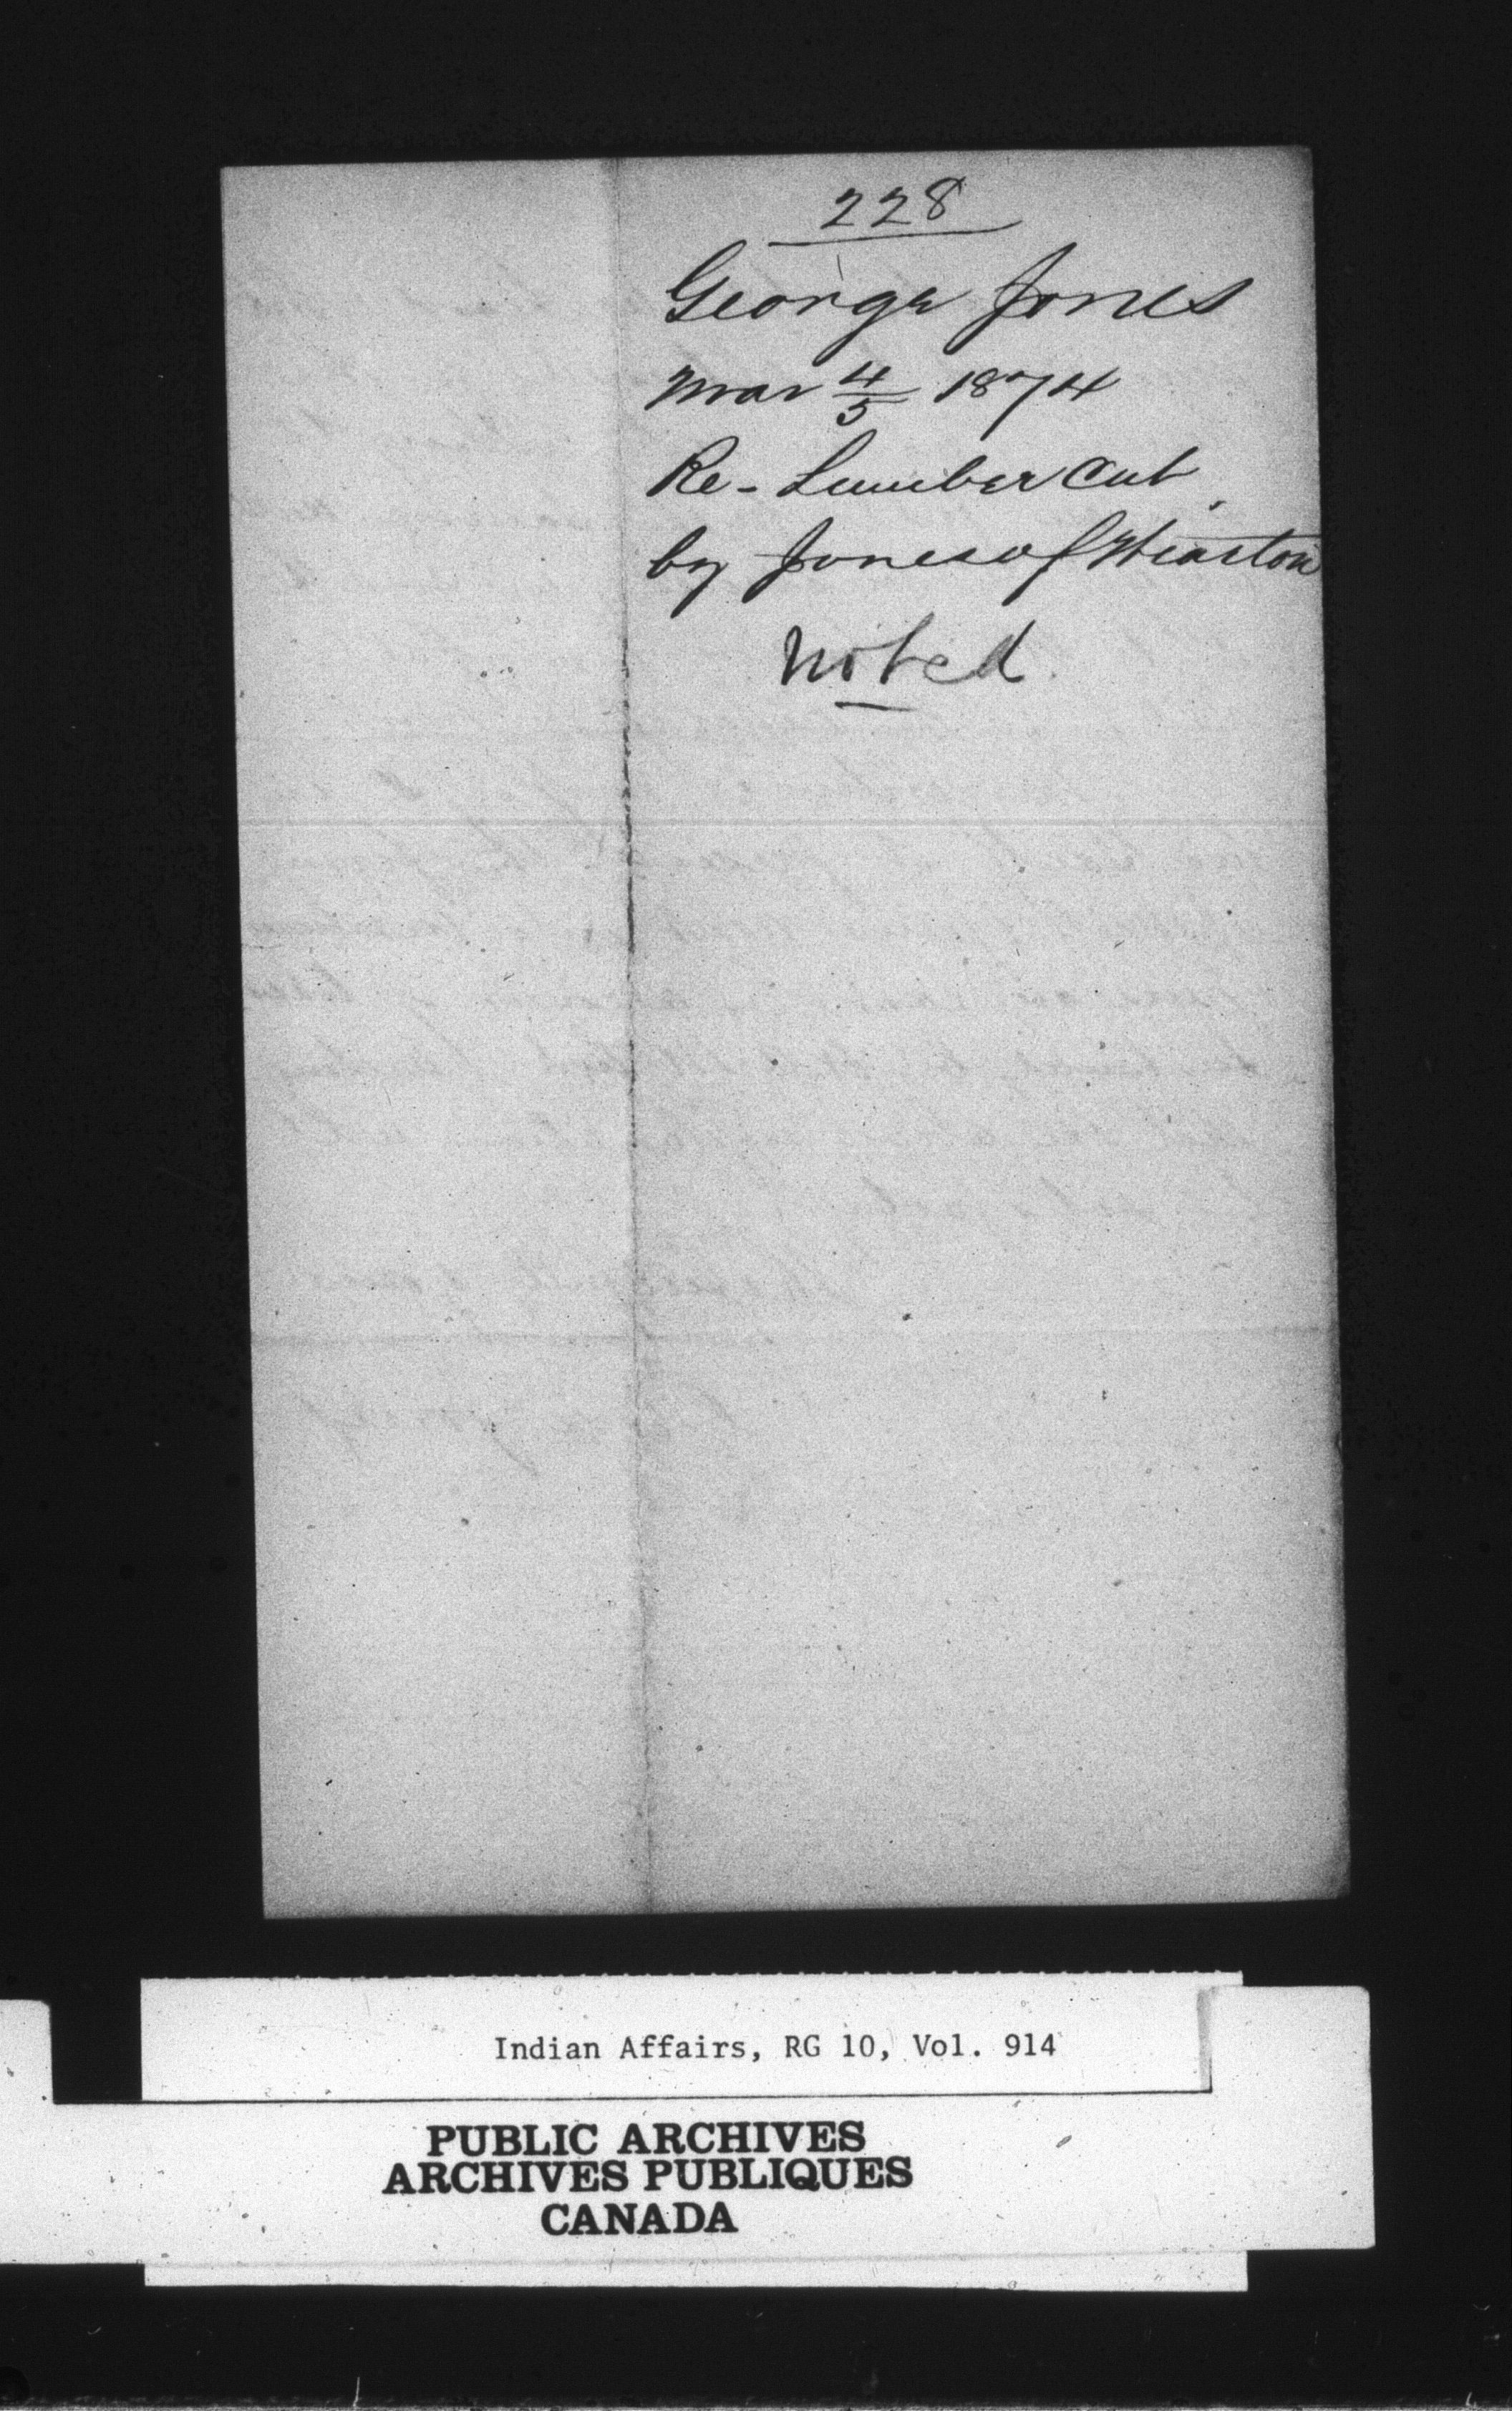 228
George Jones
Mar 4/5 1874
Re - Lumber Cut
by Jones of Wiarton
Noted
Indian Affairs, RG 10, Vol. 914
PUBLIC ARCHIVES
ARCHIVES PUBLIQUES
CANADA